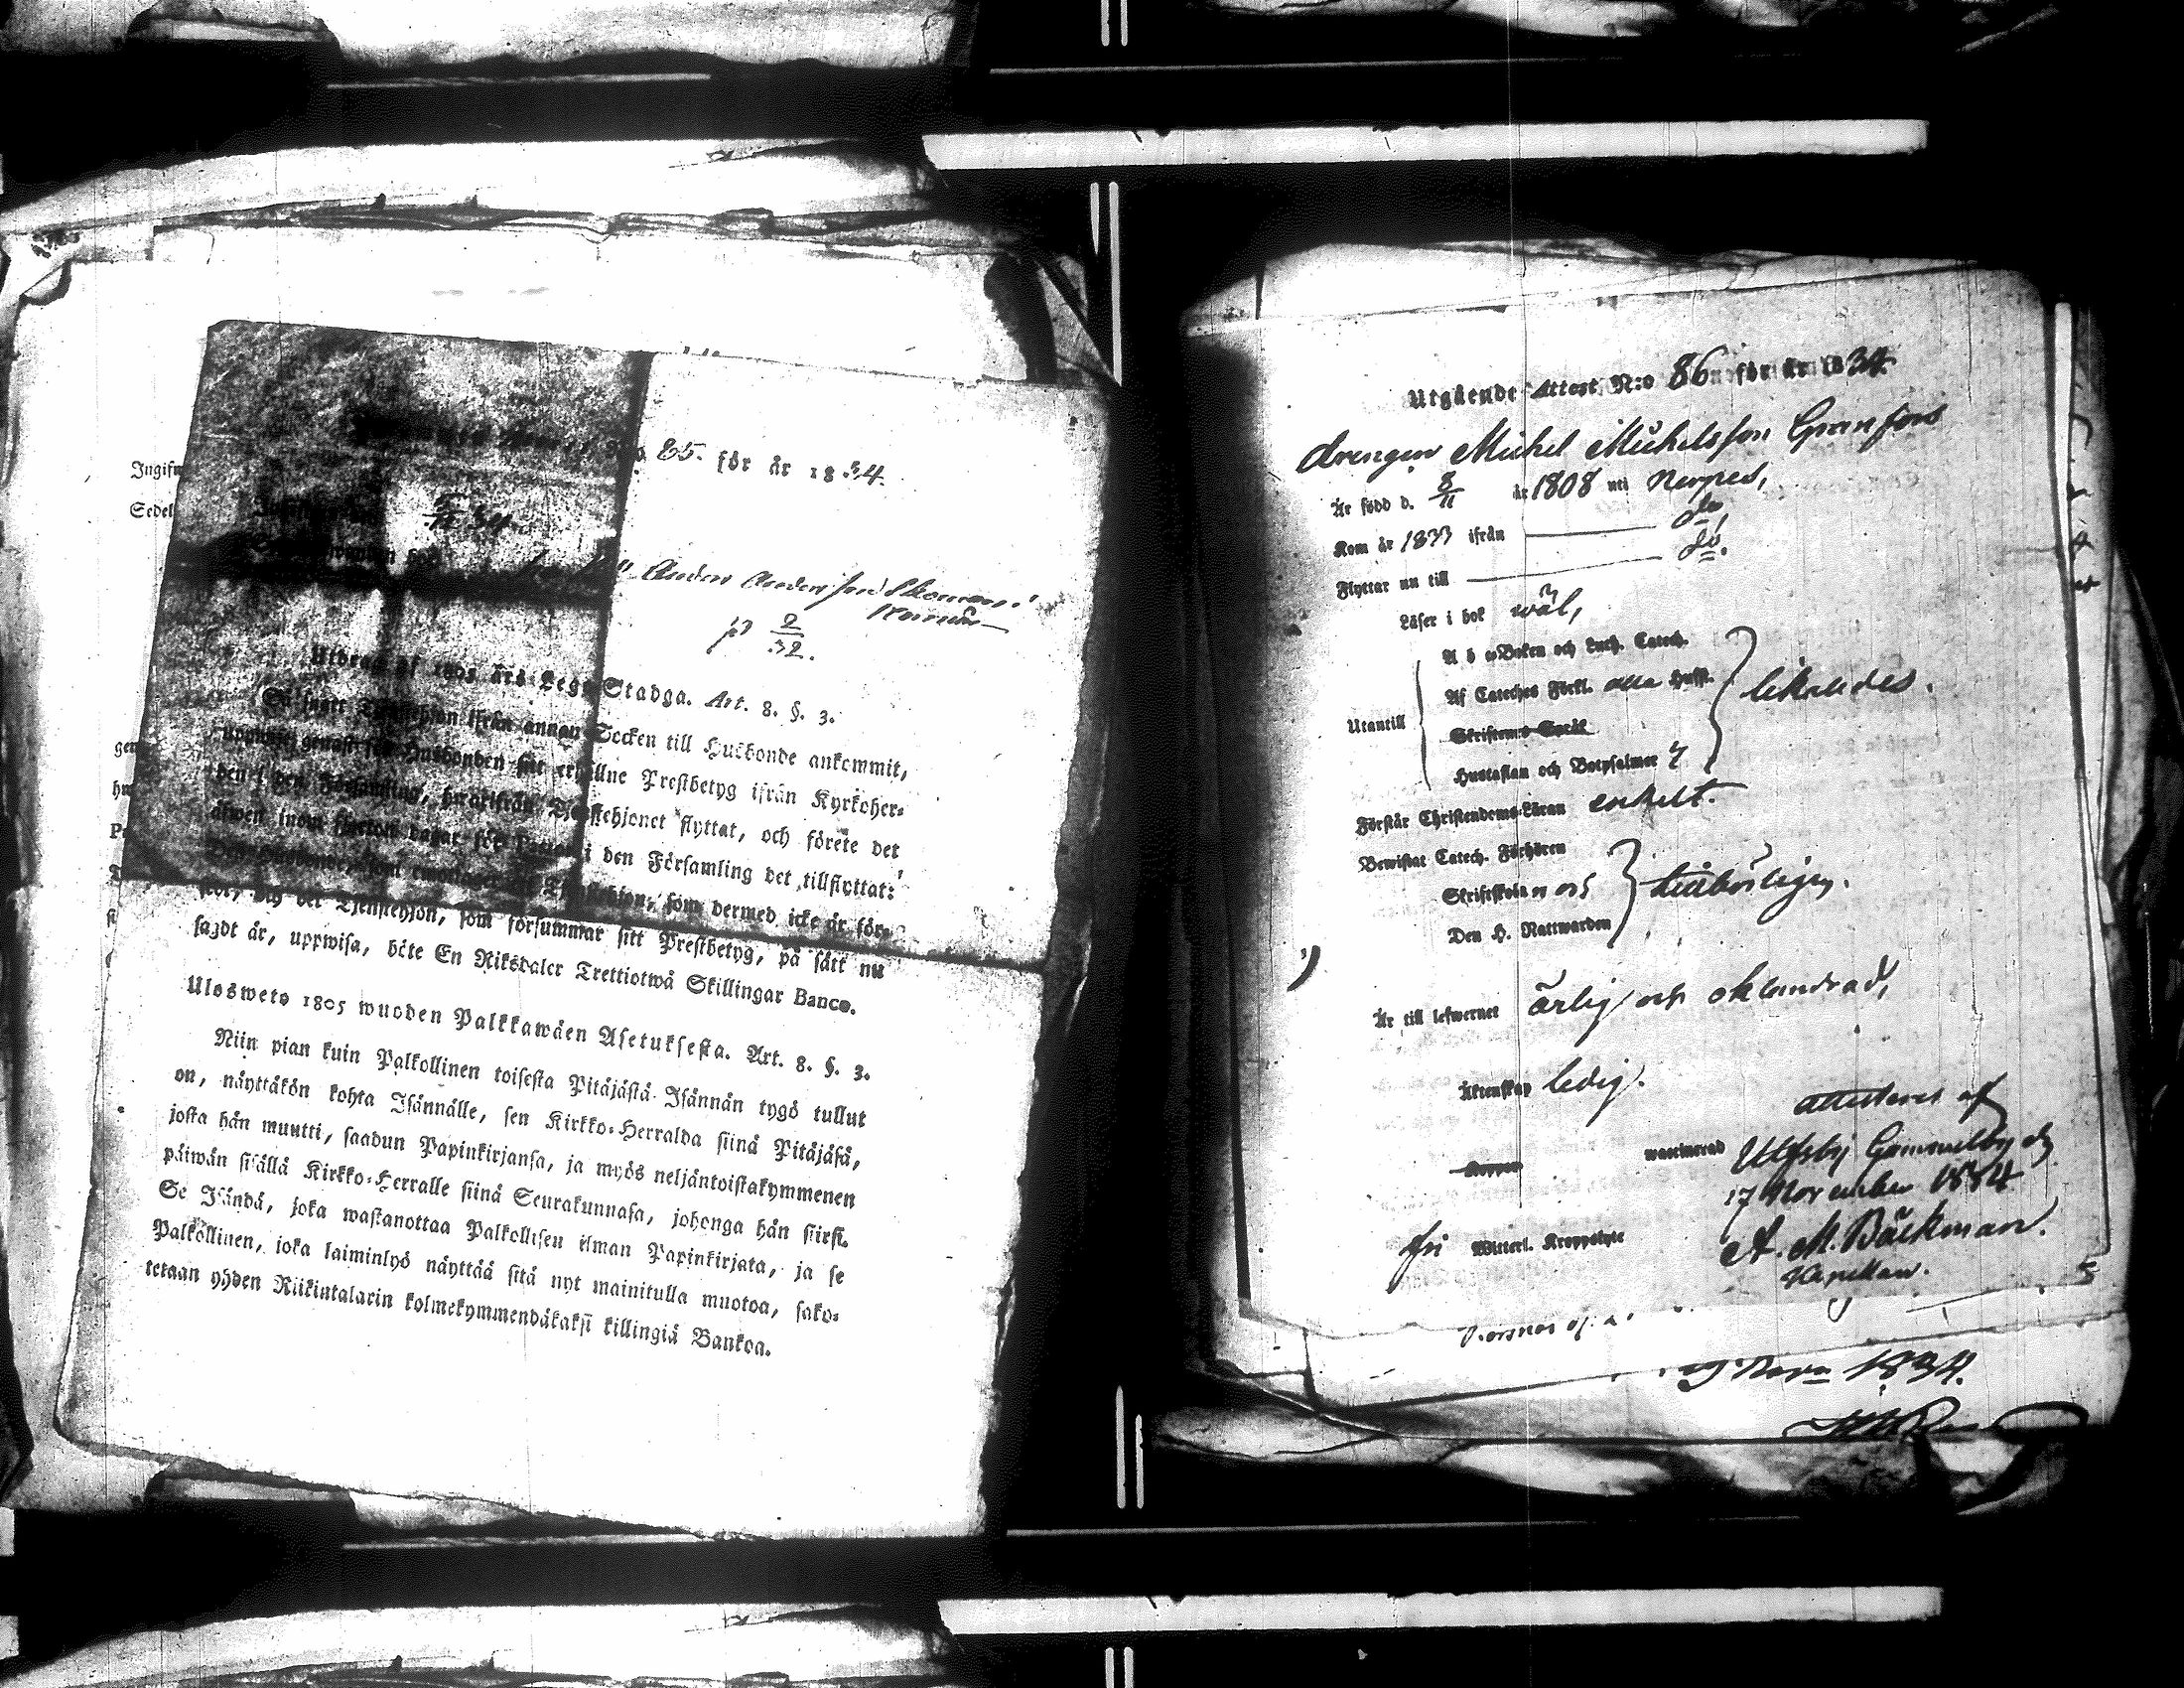 85. för år 1834.
Ingif
Sedel
34.
Anders Andersson
på 2/32.
Utdrag af 1805 års Lego-Stadga. Art. 8. §. 3.
Så snart Tjenstehjon ifrån annan Socken till Husbonde ankommit,
uppwise genast för Husbonden sitt erhållne Prestbetyg ifrån Kyrkoher-
den i den Församling, hwarifrån Tjenstehjonet flyttat, och förete det
äfwen inom fjorton dagar för Pastor i den Församling det tillflyttat:
Den Husbonde, som emottager ett Tjenstehjon, som dermed icke är för-
sedt, och det Tjenstehjon, som försummar sitt Prestbetyg, på sätt nu
sagdt är, uppwisa, böte En Riksdaler Trettiotwå Skillingar Banco.
Ulosweto 1805 wuoden Palkkawäen Asetuksesta. Art. 8. §. 3.
Niin pian kuin Palkollinen toisesta Pitäjästä Isännän tygö tullut
on, näyttäkön kohta Isännälle, sen Kirkko-Herralda siinä Pitäjäsä,
josta hän muutti, saadun Papinkirjansa, ja myös neljäntoistakymmenen
päiwän sisällä Kirkko-Herralle siinä Seurakunnasa, johonga hän siirsi.
Se Isändä, joka wastanottaa Palkollisen ilman Papinkirjata, ja se
Palkollinen, joka laiminlyö näyttää sitä nyt mainitulla muotoa, sako-
tetaan yhden Riikintalarin kolmekymmendäkaksi killingiä Bankoa.
Utgående Attest N:o 86 för år 1834.
drengen Michel Michelsson Granfors
Är född d. 8/11 år 1808 uti Nerpes,
Kom år 1833 ifrån do,
Flyttar nu till do.
Läser i bok wäl,
A b c-Boken och Luth. Catech.
Af Cateches Förkl. Hufst.
Utantill likaledes.
Skriftens Språk
Hustaflan och Botpsalmer 7
Förstår Christendoms-Läran enkelt.
Bewistat Catech. Förhören
Skriftskolan och tillbörligen.
Den H. Nattwarden
Är till lefwernet ärlig och oklandrad,
Äktenskap ledig.
attesteras af
Koppor waccinerad Ulfsby Gammelby d.
17 November 1834
fri Witterl. Kroppslyte A. M. Bäckman.
Kapellan.
1834.